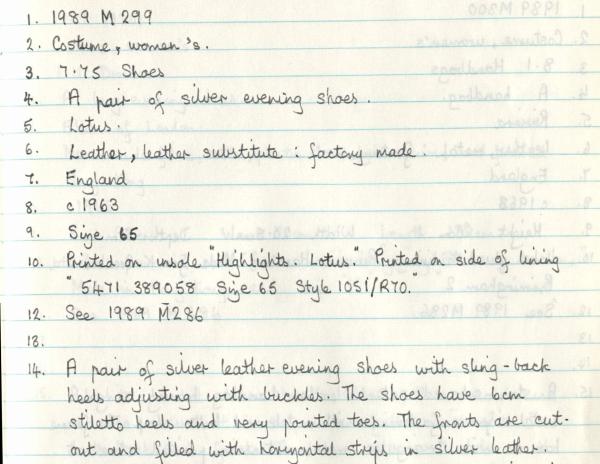 1. 1989 M 299
2. Costume, women's.
3. 7.75 Shoes
4. A pair of silver evening shoes.
5. Lotus.
6. Leather, leather substitute : factory made.
7. England
8. c 1963
9. Size 65
10. Printed on insole "Highlights. Lotus." Printed on side of lining
" 5471 389058 Size 65 Style 1051/R70."
12. See 1989 M286
13.
14. A pair of silver leather evening shoes with sling-back
heels adjusting with buckles. The shoes have 6cm
stiletto heels and very pointed toes. The fronts are cut-
out and filled with horizontal strips in silver leather.